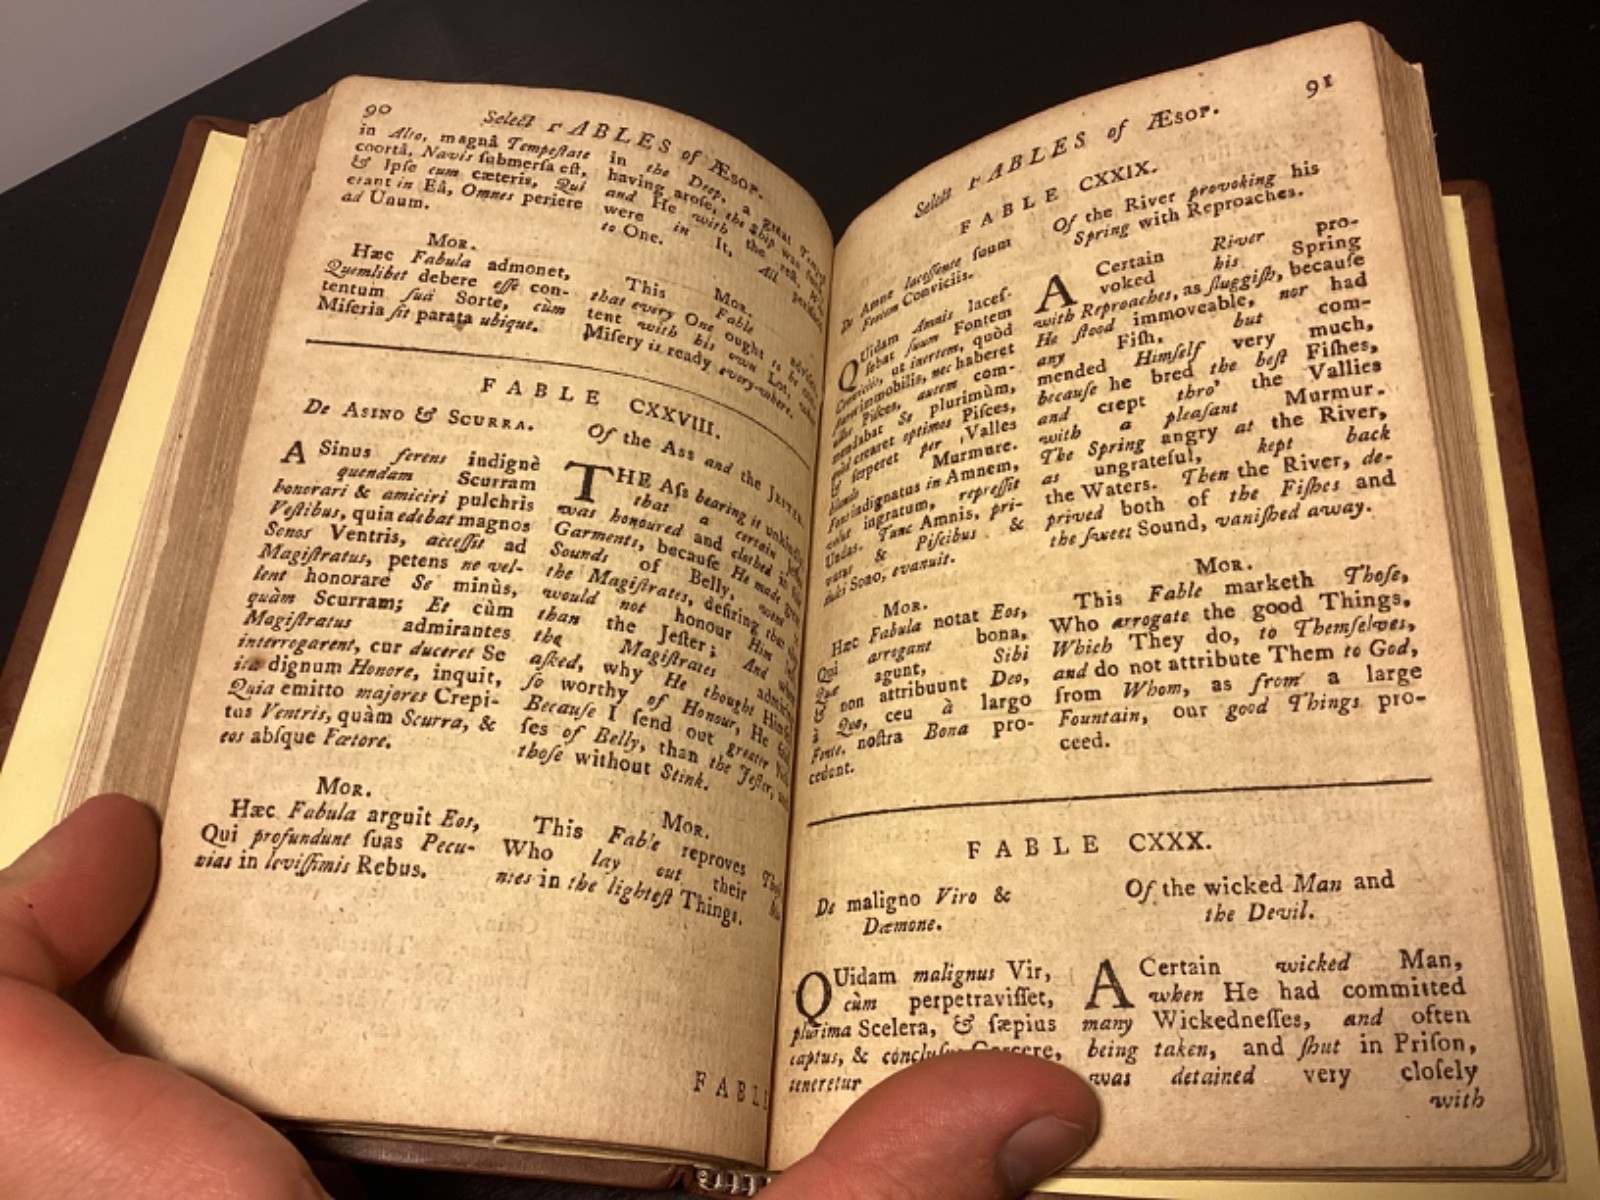 90
Select FABLES of ÆSOP.
in Alto, magnâ Tempeſtate
coortâ, Navis ſubmerſa eſt,
& Ipſe cum cæteris, Qui
erant in Eâ, Omnes periere
ad Unum.
Mor.
Hæc Fabula admonet,
Quemlibet debere eſſe con-
tentum ſuâ Sorte, cùm
Miſeria ſit parata ubique.
in the Deep, a great
having aroſe, the Ship was
and He with the reſt,
were in It, All
to One.
Mor.
This Fable
that every One ought to be
tent with his own Lot,
Miſery is ready every-where.
FABLE CXXVIII.
De Asino & Scurra.
A Sinus ferens indignè
quendam Scurram
honorari & amiciri pulchris
Veſtibus, quia edebat magnos
Sonos Ventris, acceſſit ad
Magiſtratus, petens ne vel-
lent honorare Se minùs,
quàm Scurram; Et cùm
Magiſtratus admirantes
interrogarent, cur duceret Se
ita dignum Honore, inquit,
Quia emitto majores Crepi-
tus Ventris, quàm Scurra, &
eos abſque Fœtore.
Mor.
Hæc Fabula arguit Eos,
Qui profundunt ſuas Pecu-
nias in leviſſimis Rebus.
Of the Ass and the Jester.
THE Aſs bearing it
that a certain
was honoured and clothed in
Garments, becauſe He made
Sounds of Belly, went
the Magiſtrates, deſiring
would not honour Him
than the Jeſter; And
the Magiſtrates
aſked, why He thought
ſo worthy of Honour, He
Becauſe I ſend out greater
ſes of Belly, than the Jeſter,
thoſe without Stink.
Mor.
This Fable reproves
Who lay out their
nies in the lighteſt Things.
FABLE
91
Select FABLES of ÆSOP.
FABLE CXXIX.
De Amne laceſſente ſuum
Fontem Conviciis.
QUidam Amnis laceſ-
ſebat ſuum Fontem
Conviciis, ut inertem, quòd
immobilis, nec haberet
Piſces, autem com-
mendabat Se plurimùm,
quòd crearet optimos Piſces,
& ſerperet per Valles
blando Murmure.
Fons indignatus in Amnem,
velut ingratum, repreſſit
Undas. Tunc Amnis, pri-
vatus & Piſcibus &
dulci Sono, evanuit.
Mor.
Hæc Fabula notat Eos,
Qui arrogant bona,
Quæ agunt, Sibi
& non attribuunt Deo,
à Quo, ceu à largo
Fonte, noſtra Bona pro-
cedunt.
Of the River provoking his
Spring with Reproaches.
A Certain River pro-
voked his Spring
with Reproaches, as ſluggiſh, becauſe
He ſtood immoveable, nor had
any Fiſh, but com-
mended Himſelf very much,
becauſe he bred the beſt Fiſhes,
and crept thro' the Vallies
with a pleaſant Murmur.
The Spring angry at the River,
as ungrateful, kept back
the Waters. Then the River, de-
prived both of the Fiſhes and
the ſweet Sound, vaniſhed away.
Mor.
This Fable marketh Thoſe,
Who arrogate the good Things,
Which They do, to Themſelves,
and do not attribute Them to God,
from Whom, as from a large
Fountain, our good Things pro-
ceed.
FABLE CXXX.
De maligno Viro &
Dæmone.
QUidam malignus Vir,
cùm perpetraviſſet,
plurima Scelera, & ſæpius
captus, & concluſus Carcere,
teneretur
Of the wicked Man and
the Devil.
A Certain wicked Man,
when He had committed
many Wickedneſſes, and often
being taken, and ſhut in Priſon,
was detained very cloſely
with